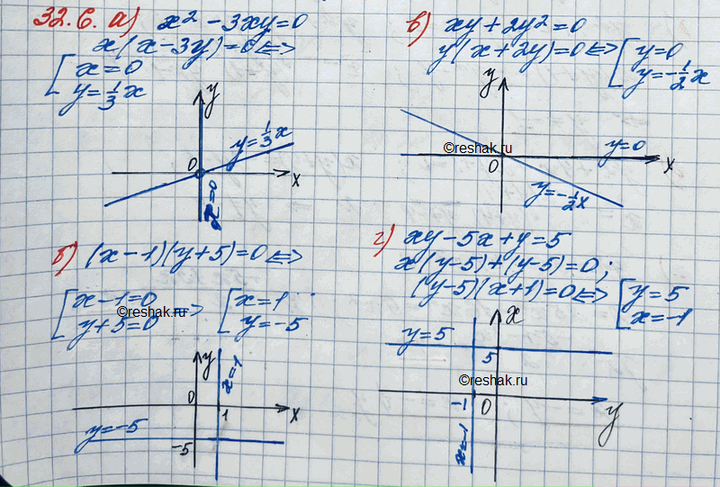 32.6. а) x² - 3xy = 0
x(x - 3y) = 0 <=>
[ x = 0
y = 1/3 x
y
y = 1/3 x
0
x
x = 0
в) xy + 2y² = 0
y(x + 2y) = 0 <=> [ y = 0
y = -1/2 x
y
©reshak.ru
y = 0
0
x
y = -1/2 x
б) (x - 1)(y + 5) = 0 <=>
[ x - 1 = 0
y + 5 = 0 > [ x = 1
y = -5
©reshak.ru
y
x = 1
0
1
x
y = -5
-5
г) xy - 5x + y = 5
x(y - 5) + (y - 5) = 0;
(y - 5)(x + 1) = 0 <=> [ y = 5
x = -1
x
y = 5
5
©reshak.ru
-1
0
y
x = -1